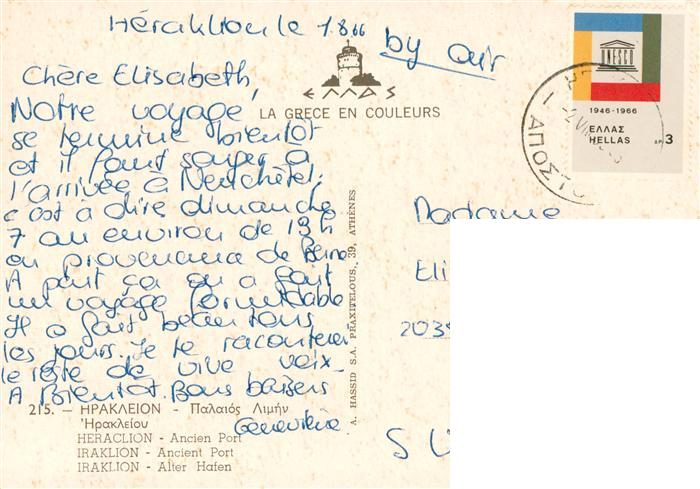 Héraklion le 1.8.66
by air
Chère Elisabeth,
Notre voyage,
se termine bientôt
et il faut songer à
l'arrivée à Neuchâtel,
c'est à dire dimanche
7 au environ de 19h
en provenance de Berne
A part ça on a fait
un voyage formidable
Il a fait beau tous
les jours. Je te raconterai
le reste de vive voix.
A Bientôt. Bons baisers
Geneviève.
ΕΛΛΑΣ
LA GRECE EN COULEURS
A. HASSID S.A. PRAXITELOUS, 39, ATHÈNES
215. - ΗΡΑΚΛΕΙΟΝ - Παλαιός Λιμήν
Ἡρακλείου
HERACLION - Ancien Port
IRAKLION - Ancient Port
IRAKLION - Alter Hafen
UNESCO
1946-1966
ΕΛΛΑΣ
HELLAS
ΔΡ. 3
Madame
Eli
203
S